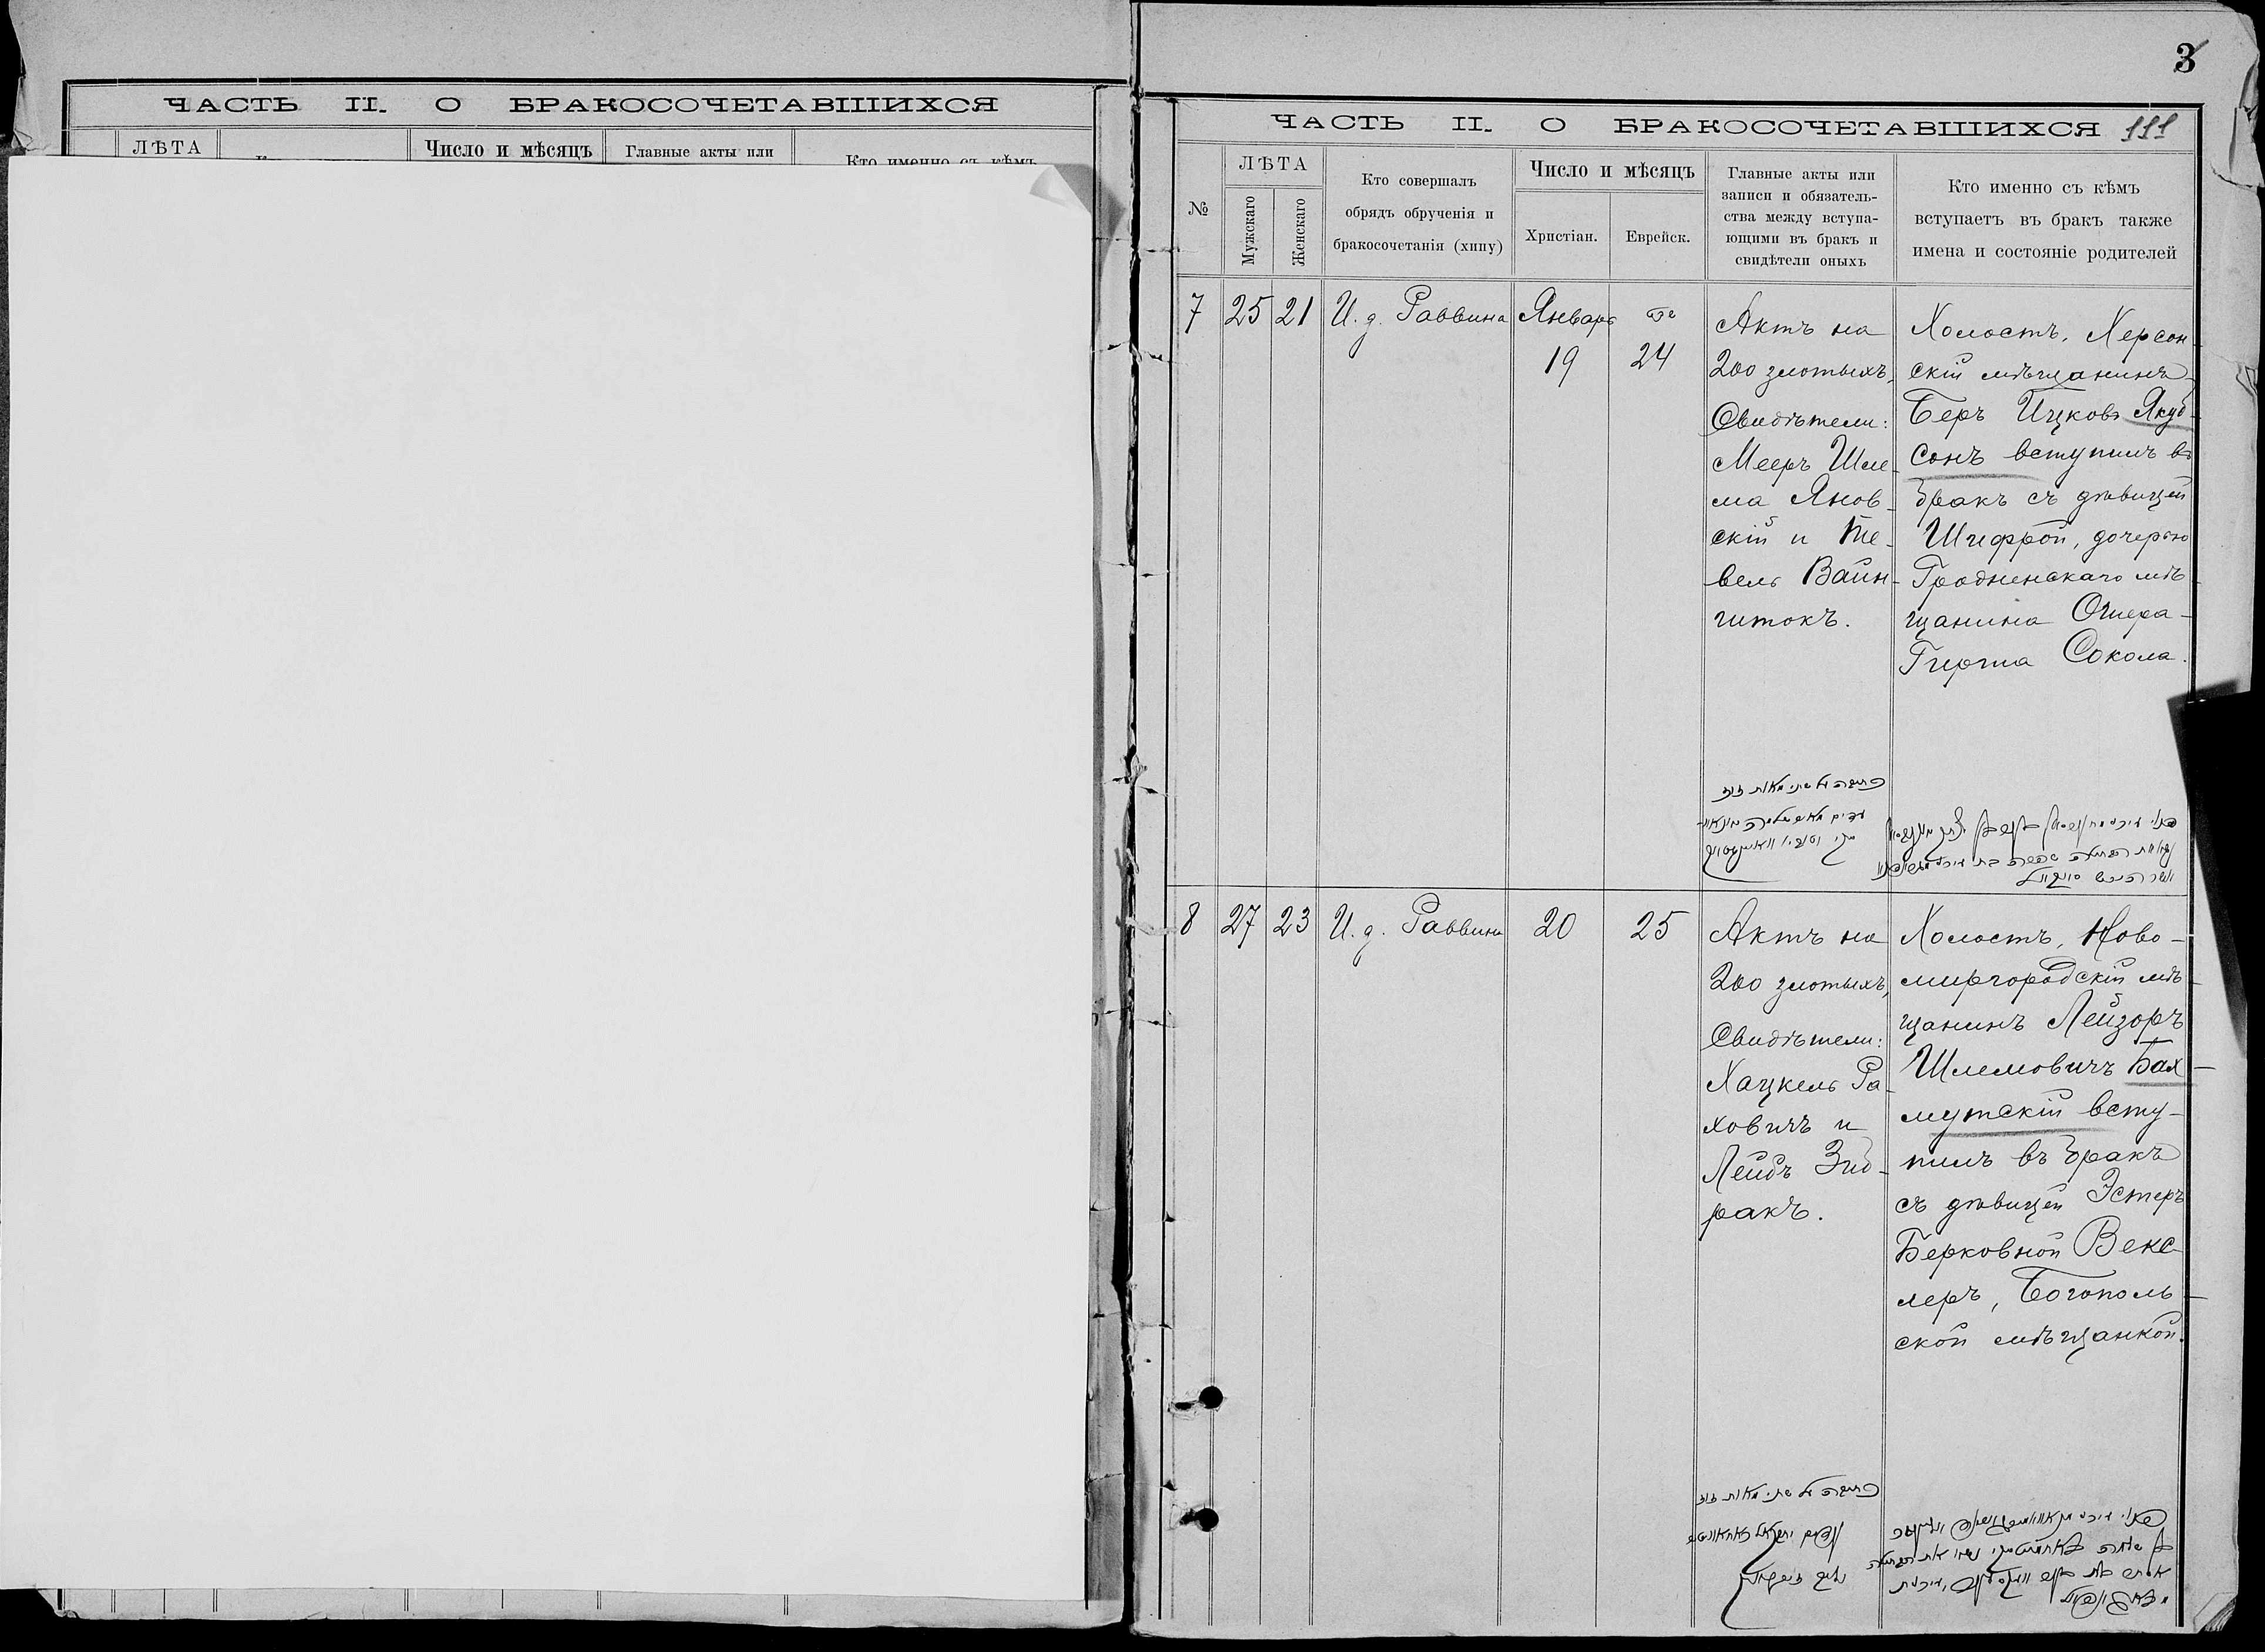 ЧАСТЬ II. О БРАКОСОЧЕТАВШИХСЯ
ЛѢТА
Число и мѣсяцъ
Главные акты или
Кто именно съ кѣмъ
3
ЧАСТЬ II. О БРАКОСОЧЕТАВШИХСЯ 111
№
ЛѢТА
Мужскаго
Женскаго
Кто совершалъ
обрядъ обрученія и
бракосочетанія (хипу)
Число и мѣсяцъ
Христіан.
Еврейск.
Главные акты или
записи и обязатель-
ства между вступа-
ющими въ бракъ и
свидѣтели оныхъ
Кто именно съ кѣмъ
вступаетъ въ бракъ также
имена и состояніе родителей
7
25
21
И. д. Раввина
Январь
19
24
Актъ на
200 злотыхъ,
Свидѣтели:
Мееръ Шле-
ма Янов-
скій и Те-
вель Вайн-
штокъ.
Холостъ, Херсон-
скій мѣщанинъ
Беръ Ицковъ Якуб-
сонъ вступилъ въ
бракъ съ дѣвицей
Шифрой, дочерью
Гродненскаго мѣ-
щанина Ошера-
Гирша Сокола.
כתובה על שתי מאות זוז
8
27
23
И. д. Раввина
20
25
Актъ на
200 злотыхъ,
Свидѣтели:
Хацкель Ра-
ховичъ и
Лейбъ Зиб-
ракъ.
Холостъ, Ново-
миргородскій мѣ-
щанинъ Лейзоръ
Шлемовичъ Бах-
мутскій всту-
пилъ въ бракъ
съ дѣвицей Эстеръ
Берковной Векс-
леръ, Богополь-
ской мѣщанкой.
כתובה על שתי מאות זוז